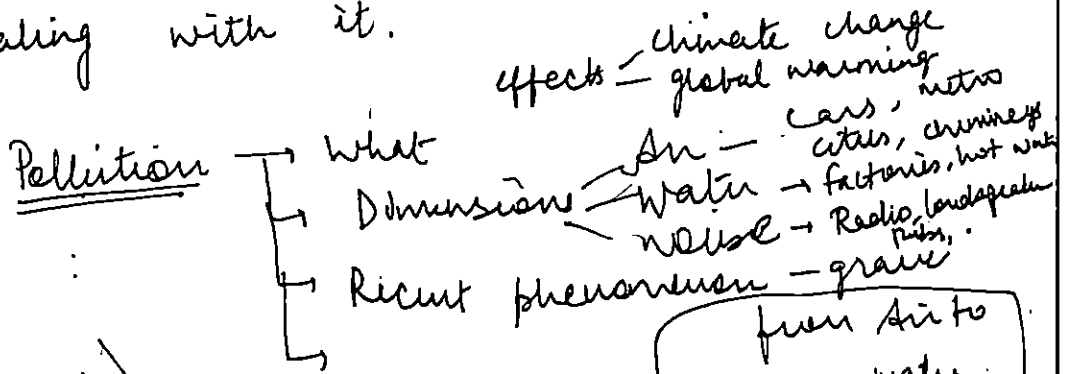 aling with it.
effects - climate change
- global warming
Pollution → What
→ Dimensions - Air - cars, metro
cities, chimneys
Water → factories, hot water
noise → Radio, loudspeaker
pubs,
→ Recent phenomenon - grave
from Air to
water